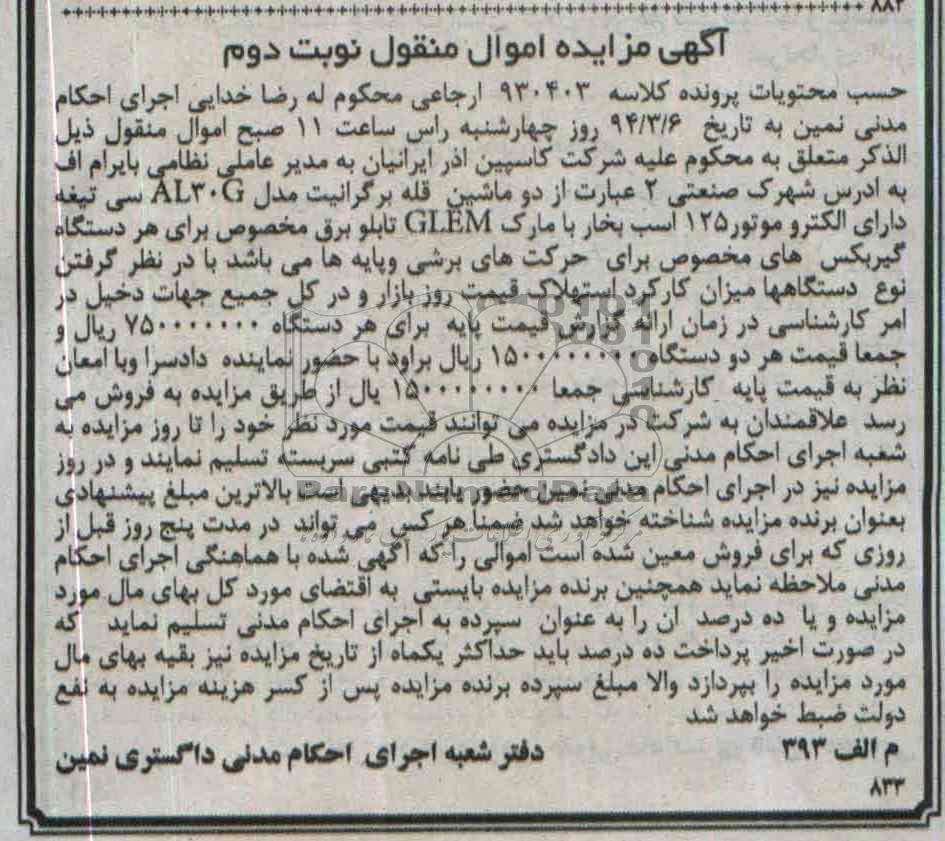 ۸۸۲
آگهی مزایده اموال منقول نوبت دوم
حسب محتویات پرونده کلاسه ۹۳۰۴۰۳ ارجاعی محکوم له رضا خدایی اجرای احکام
مدنی نمین به تاریخ ۹۴/۳/۶ روز چهارشنبه راس ساعت ۱۱ صبح اموال منقول ذیل
الذکر متعلق به محکوم علیه شرکت کاسپین اذر ایرانیان به مدیر عاملی نظامی بایرام اف
به ادرس شهرک صنعتی ۲ عبارت از دو ماشین قله برگرانیت مدل AL۳۰G سی تیغه
دارای الکترو موتور۱۲۵ اسب بخار با مارک GLEM تابلو برق مخصوص برای هر دستگاه
گیربکس های مخصوص برای حرکت های برشی وپایه ها می باشد با در نظر گرفتن
نوع دستگاهها میزان کارکرد استهلاک قیمت روز بازار و در کل جمیع جهات دخیل در
امر کارشناسی در زمان ارائه گزارش قیمت پایه برای هر دستگاه ۷۵۰۰۰۰۰۰۰۰ ریال و
جمعا قیمت هر دو دستگاه ۱۵۰۰۰۰۰۰۰۰۰ ریال براود با حضور نماینده دادسرا وبا امعان
نظر به قیمت پایه کارشناسی جمعا ۱۵۰۰۰۰۰۰۰۰۰ یال از طریق مزایده به فروش می
رسد علاقمندان به شرکت در مزایده می توانند قیمت مورد نظر خود را تا روز مزایده به
شعبه اجرای احکام مدنی این دادگستری طی نامه کتبی سربسته تسلیم نمایند و در روز
مزایده نیز در اجرای احکام مدنی نمین حضور یابند بدیهی است بالاترین مبلغ پیشنهادی
بعنوان برنده مزایده شناخته خواهد شد ضمنا هر کس می تواند در مدت پنج روز قبل از
روزی که برای فروش معین شده است اموالی را که آگهی شده با هماهنگی اجرای احکام
مدنی ملاحظه نماید همچنین برنده مزایده بایستی به اقتضای مورد کل بهای مال مورد
مزایده و یا ده درصد ان را به عنوان سپرده به اجرای احکام مدنی تسلیم نماید که
در صورت اخیر پرداخت ده درصد باید حداکثر یکماه از تاریخ مزایده نیز بقیه بهای مال
مورد مزایده را بپردازد والا مبلغ سپرده برنده مزایده پس از کسر هزینه مزایده به نفع
دولت ضبط خواهد شد
م الف ۳۹۳ دفتر شعبه اجرای احکام مدنی داگستری نمین
۸۳۳
ParsNamadData